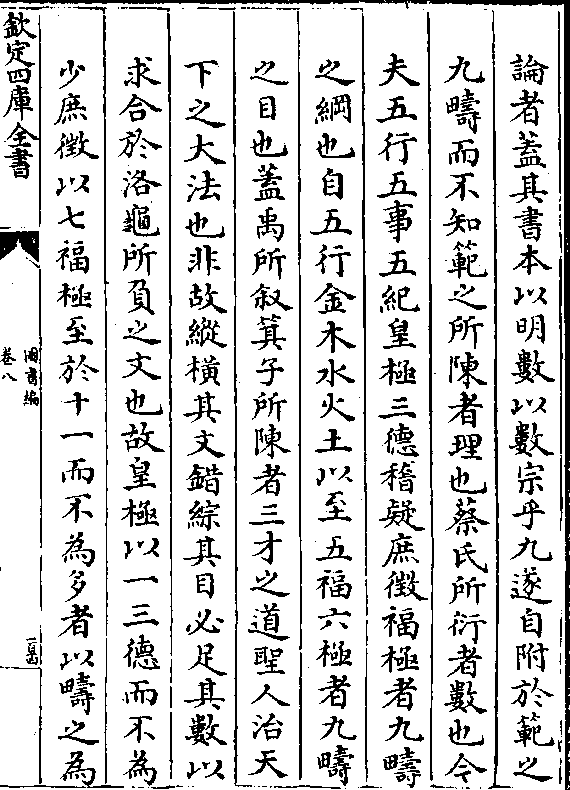 論者蓋其書本以明數以數宗乎九遂自附於範之
九疇而不知範之所陳者理也蔡氏所衍者數也今
夫五行五事五紀皇極三德稽疑庶徵福極者九疇
之綱也自五行金木水火土以至五福六極者九疇
之目也蓋禹所敘箕子所陳者三才之道聖人治天
下之大法也非故縱橫其文錯綜其目必足其數以
求合於洛龜所負之文也故皇極以一三德而不為
少庶徵以七福極至於十一而不為多者以疇之為
欽定四庫全書
圖書編
卷八